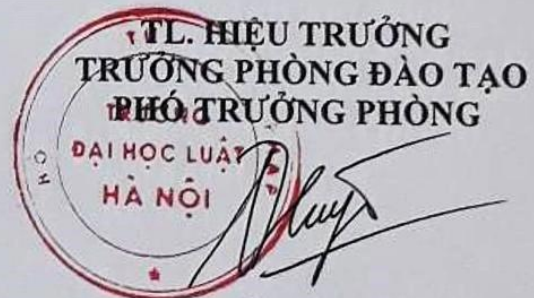 TL. HIỆU TRƯỞNG
TRƯỞNG PHÒNG ĐÀO TẠO
PHÓ TRƯỞNG PHÒNG
TRƯỜNG
ĐẠI HỌC LUẬT
HÀ NỘI